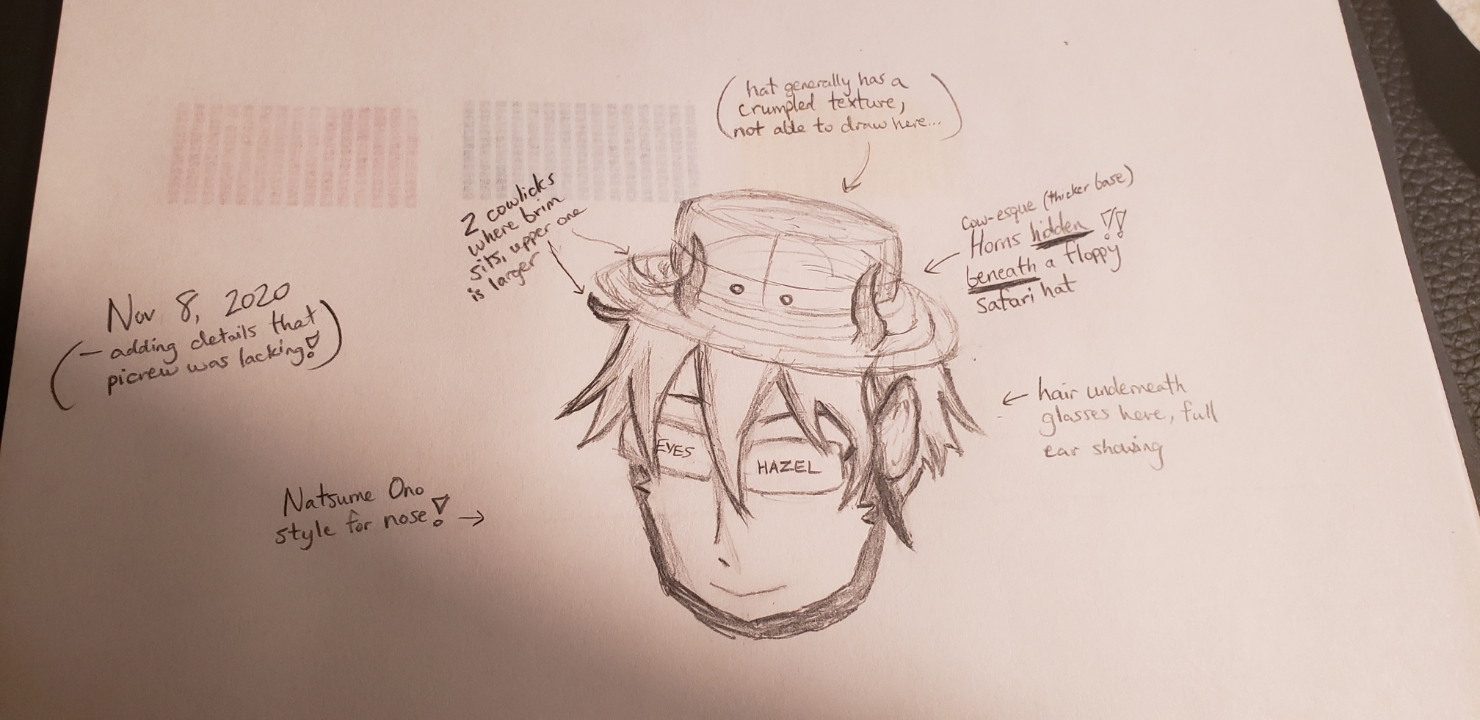 (hat generally has a
crumpled texture,
not able to draw here...)
2 cowlicks
where brim
sits, upper one
is larger
cow-esque (thicker base)
Horns hidden !!
beneath a floppy
safari hat
Nov 8, 2020
(- adding details that
picrew was lacking!)
← hair underneath
glasses here, full
ear showing
EYES
HAZEL
Natsume Ono
style for nose! →